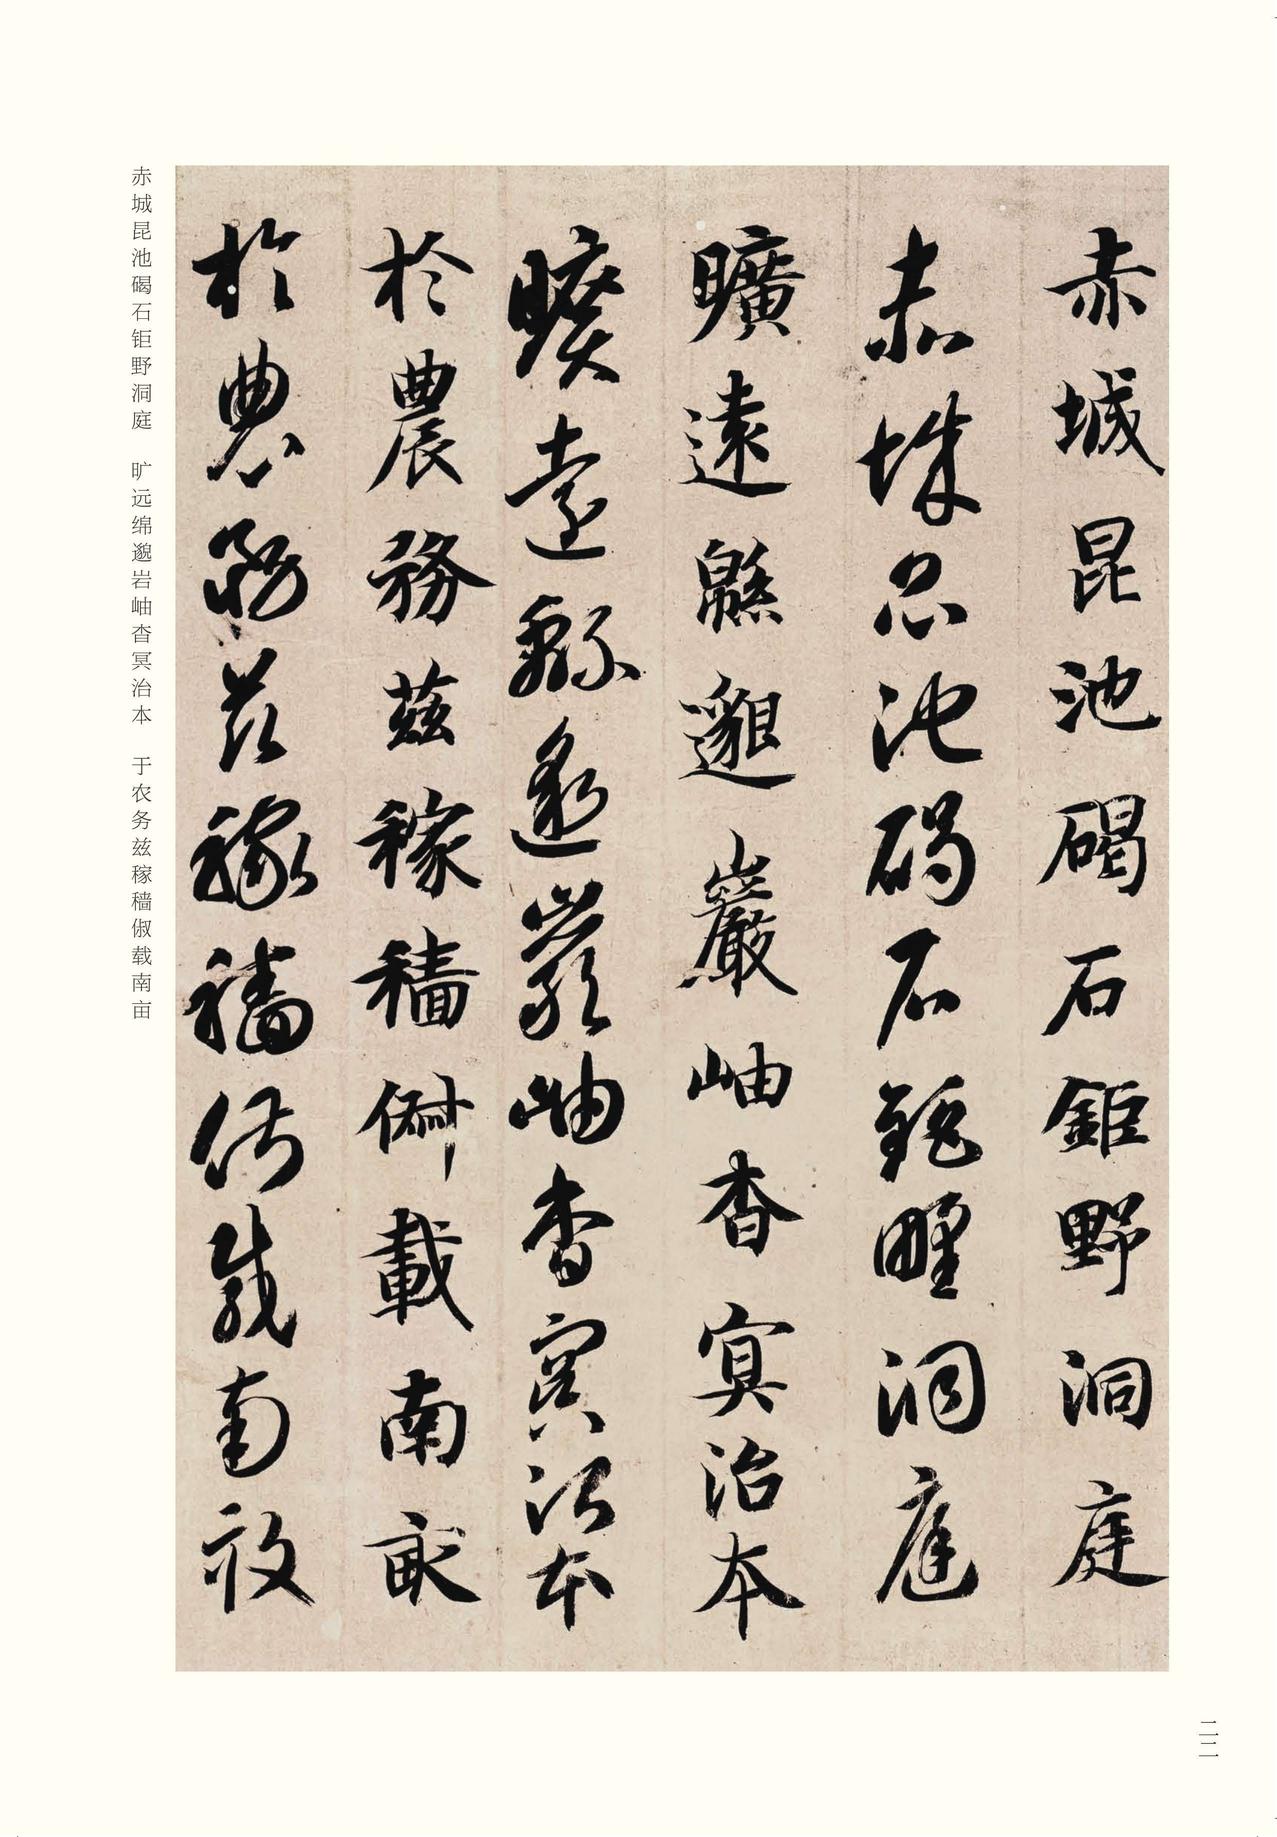 赤城昆池碣石鉅野洞庭
赤城昆池碣石鉅野洞庭
曠遠緜邈巖岫杳冥治本
曠遠緜邈巖岫杳冥治本
於農務茲稼穡俶載南畝
於農務茲稼穡俶載南畝
赤城昆池碣石钜野洞庭　旷远绵邈岩岫杳冥治本　于农务兹稼穑俶载南亩
二二